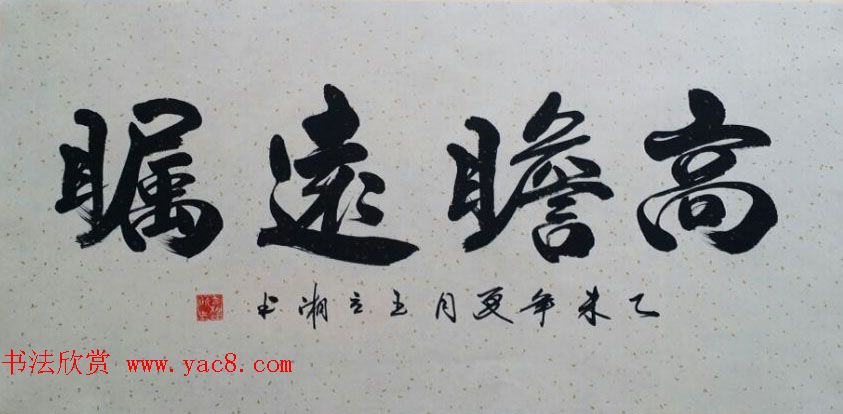 高瞻遠瞩
乙未年夏月王立湘书
书法欣赏 www.yac8.com